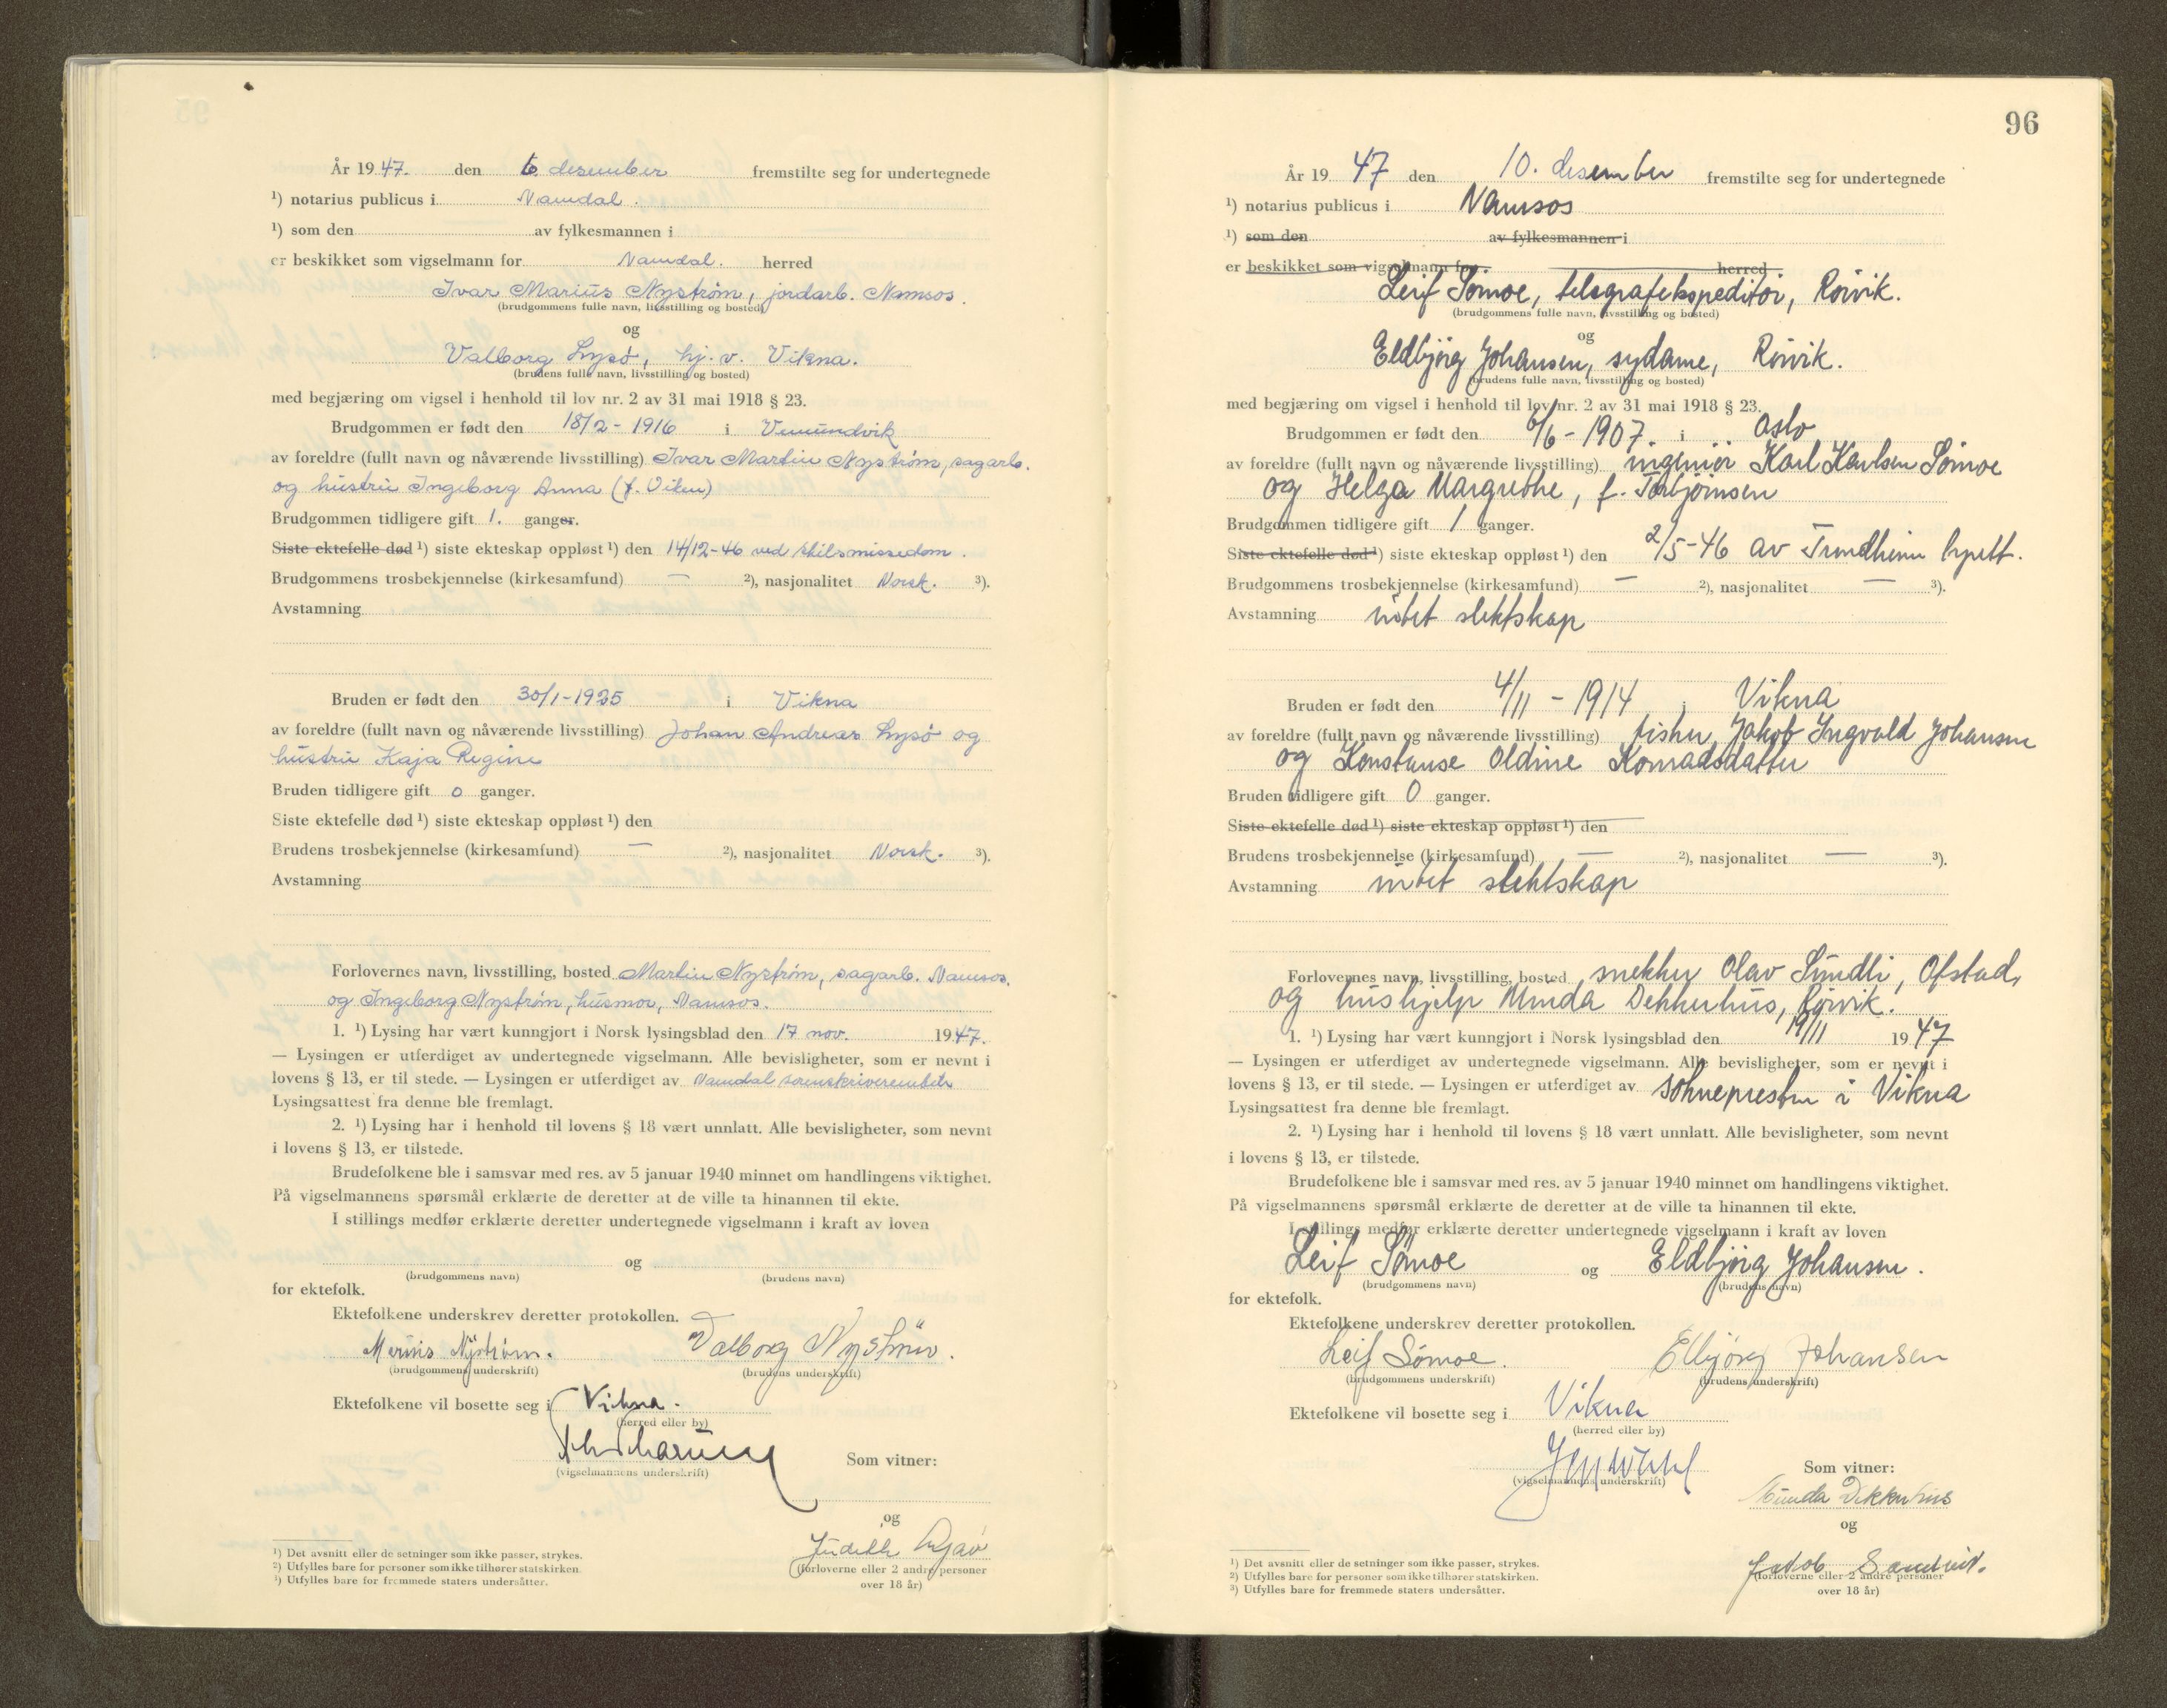 År 1947. den 6 desember fremstilte seg for undertegnede
¹) notarius publicus i Namdal.
¹) som den av fylkesmannen i
er beskikket som vigselmann for Namdal. herred
Ivar Marius Nystrøm, jordarb. Namsos.
(brudgommens fulle navn, livsstilling og bosted)
og
Valborg Lysø, hj. v. Vikna.
(brudens fulle navn, livsstilling og bosted)
med begjæring om vigsel i henhold til lov nr. 2 av 31 mai 1918 § 23.
Brudgommen er født den 18/2 - 1916 i Vemundvik
av foreldre (fullt navn og nåværende livsstilling) Ivar Martin Nystrøm, sagarb.
og hustru Ingeborg Anna (f. Viken)
Brudgommen tidligere gift 1. ganger.
Siste ektefelle død ¹) siste ekteskap oppløst ¹) den 14/12-46 ved skilsmissedom.
Brudgommens trosbekjennelse (kirkesamfund) — ²), nasjonalitet Norsk. ³).
Avstamning
Bruden er født den 30/1-1925 i Vikna
av foreldre (fullt navn og nåværende livsstilling) Johan Andreas Lysø og
hustru Kaja Regine
Bruden tidligere gift 0 ganger.
Siste ektefelle død ¹) siste ekteskap oppløst ¹) den
Brudens trosbekjennelse (kirkesamfund) — ²), nasjonalitet Norsk. ³).
Avstamning
Forlovernes navn, livsstilling, bosted Martin Nystrøm, sagarb. Namsos.
og Ingeborg Nystrøm, husmor, Namsos.
1. ¹) Lysing har vært kunngjort i Norsk lysingsblad den 17 nov. 1947.
— Lysingen er utferdiget av undertegnede vigselmann. Alle bevisligheter, som er nevnt i
lovens § 13, er til stede. — Lysingen er utferdiget av Namdal sorenskriverembete
Lysingsattest fra denne ble fremlagt.
2. ¹) Lysing har i henhold til lovens § 18 vært unnlatt. Alle bevisligheter, som nevnt
i lovens § 13, er tilstede.
Brudefolkene ble i samsvar med res. av 5 januar 1940 minnet om handlingens viktighet.
På vigselmannens spørsmål erklærte de deretter at de ville ta hinannen til ekte.
I stillings medfør erklærte deretter undertegnede vigselmann i kraft av loven
og
(brudgommens navn) (brudens navn)
for ektefolk.
Ektefolkene underskrev deretter protokollen.
Marius Nystrøm. Valborg Nystrøm.
(brudgommens underskrift) (brudens underskrift)
Ektefolkene vil bosette seg i Vikna.
(herred eller by)
Som vitner:
(vigselmannens underskrift)
og
Judith
(forloverne eller 2 andre personer
over 18 år)
¹) Det avsnitt eller de setninger som ikke passer, strykes.
²) Utfylles bare for personer som ikke tilhører statskirken.
³) Utfylles bare for fremmede staters undersåtter.
96
År 1947 den 10. desember fremstilte seg for undertegnede
¹) notarius publicus i Namsos
¹) som den av fylkesmannen i
er beskikket som vigselmann for herred
Leif Sømoe, telegrafekspeditør, Rørvik.
(brudgommens fulle navn, livsstilling og bosted)
og
Eldbjørg Johansen, sydame, Rørvik.
(brudens fulle navn, livsstilling og bosted)
med begjæring om vigsel i henhold til lov nr. 2 av 31 mai 1918 § 23.
Brudgommen er født den 6/6 - 1907. i Oslo
av foreldre (fullt navn og nåværende livsstilling) ingeniør Karl Karlsen Sømoe
og Helga Margrethe, f. Torbjørnsen
Brudgommen tidligere gift 1 ganger.
Siste ektefelle død ¹) siste ekteskap oppløst ¹) den 2/5-46 av Trondheim byrett.
Brudgommens trosbekjennelse (kirkesamfund) — ²), nasjonalitet — ³).
Avstamning intet slektskap
Bruden er født den 4/11 - 1914 i Vikna
av foreldre (fullt navn og nåværende livsstilling) fisker Jakob Ingvald Johansen
og Konstanse Oldine Konradsdatter
Bruden tidligere gift 0 ganger.
Siste ektefelle død ¹) siste ekteskap oppløst ¹) den
Brudens trosbekjennelse (kirkesamfund) — ²), nasjonalitet — ³).
Avstamning intet slektskap
Forlovernes navn, livsstilling, bosted snekker Olav Sundli, Ofstad,
og hushjelp Minda Dekkerhus, Rørvik.
1. ¹) Lysing har vært kunngjort i Norsk lysingsblad den 19/11 1947
— Lysingen er utferdiget av undertegnede vigselmann. Alle bevisligheter, som er nevnt i
lovens § 13, er til stede. — Lysingen er utferdiget av soknepresten i Vikna
Lysingsattest fra denne ble fremlagt.
2. ¹) Lysing har i henhold til lovens § 18 vært unnlatt. Alle bevisligheter, som nevnt
i lovens § 13, er tilstede.
Brudefolkene ble i samsvar med res. av 5 januar 1940 minnet om handlingens viktighet.
På vigselmannens spørsmål erklærte de deretter at de ville ta hinannen til ekte.
I stillings medfør erklærte deretter undertegnede vigselmann i kraft av loven
Leif Sømoe og Eldbjørg Johansen.
(brudgommens navn) (brudens navn)
for ektefolk.
Ektefolkene underskrev deretter protokollen.
Leif Sømoe. Elbjørg Johansen
(brudgommens underskrift) (brudens underskrift)
Ektefolkene vil bosette seg i Vikna
(herred eller by)
Som vitner:
(vigselmannens underskrift)
Minda Dekkerhus
og
Jakob
(forloverne eller 2 andre personer
over 18 år)
¹) Det avsnitt eller de setninger som ikke passer, strykes.
²) Utfylles bare for personer som ikke tilhører statskirken.
³) Utfylles bare for fremmede staters undersåtter.